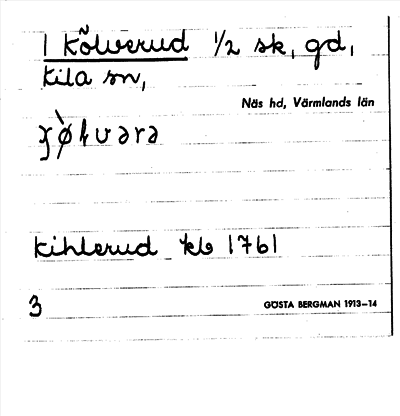 1 Kõlverud 1/2 sk, gd,
Kila sn,
Näs hd, Värmlands län
Kihlerud kb 1761
3 GÖSTA BERGMAN 1913–14